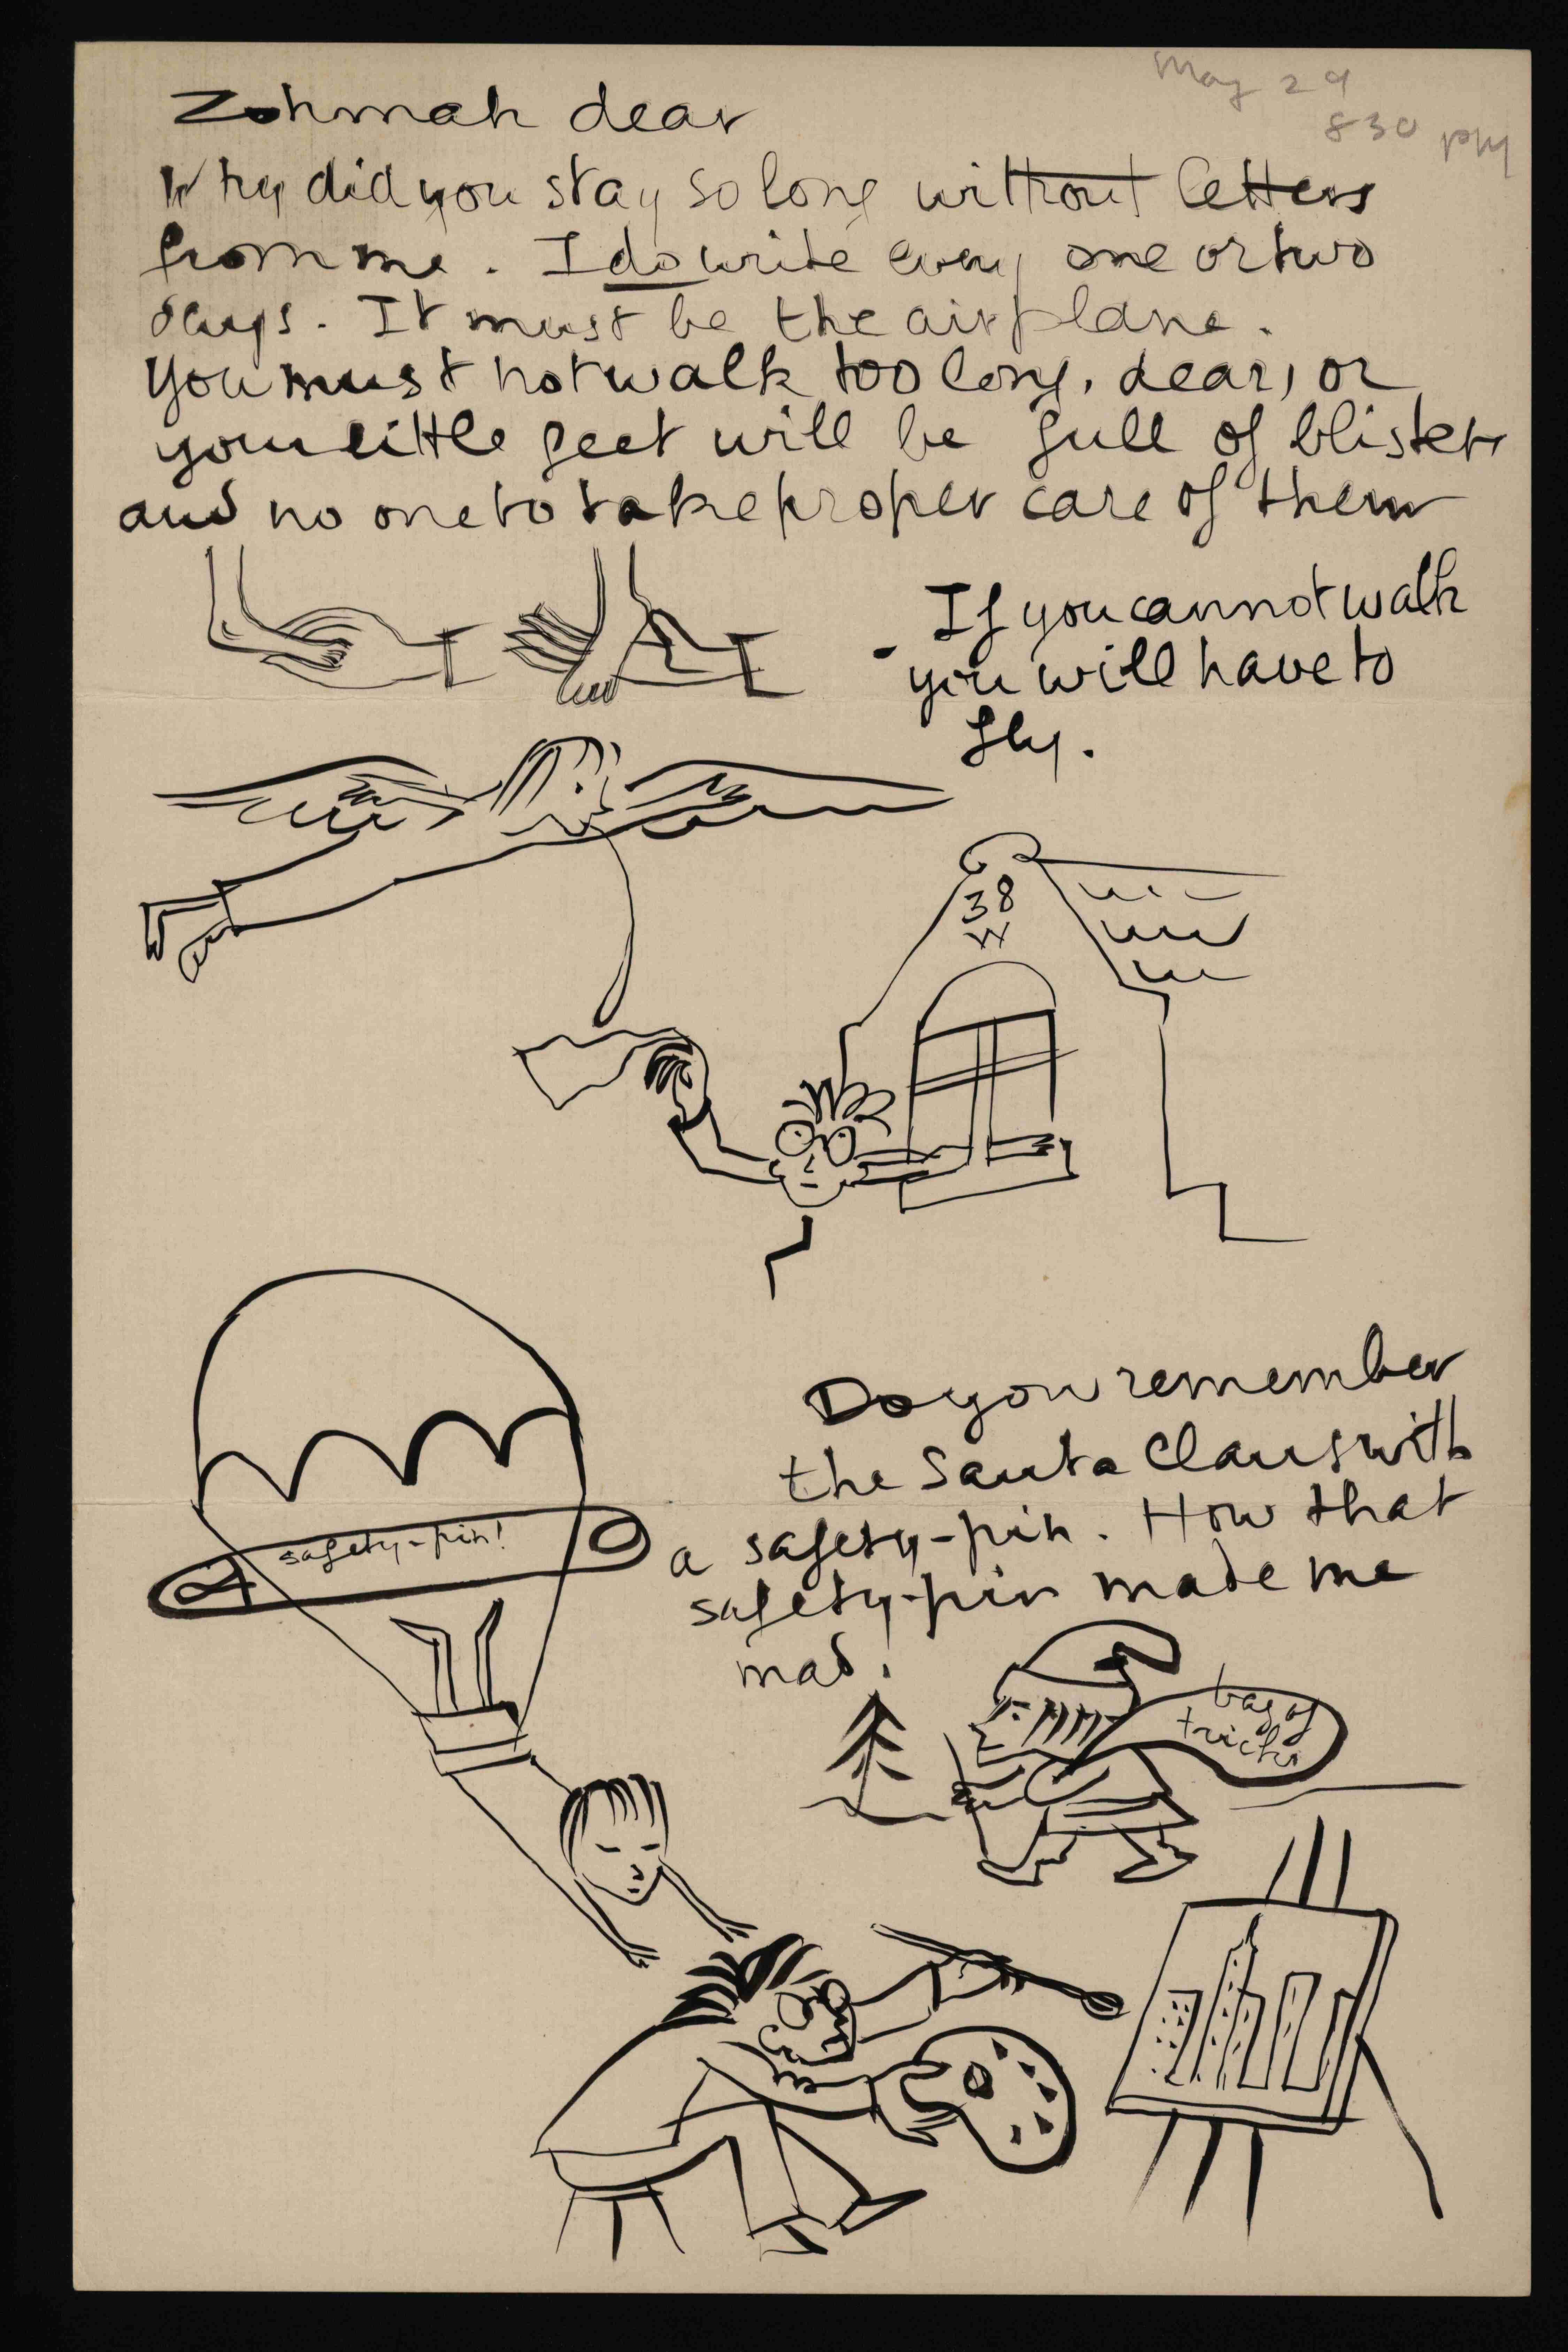 May 29
830 PM
Zohmah dear
Why did you stay so long without letters
from me. I do write every one or two
days. It must be the airplane.
You must not walk too long, dear, or
your little feet will be full of blisters
and no one to take proper care of them
If you cannot walk
you will have to
fly.
38
W
Do you remember
the Santa Claus with
a safety-pin. How that
safety-pin made me
mad!
safety-pin!
bag of
tricks